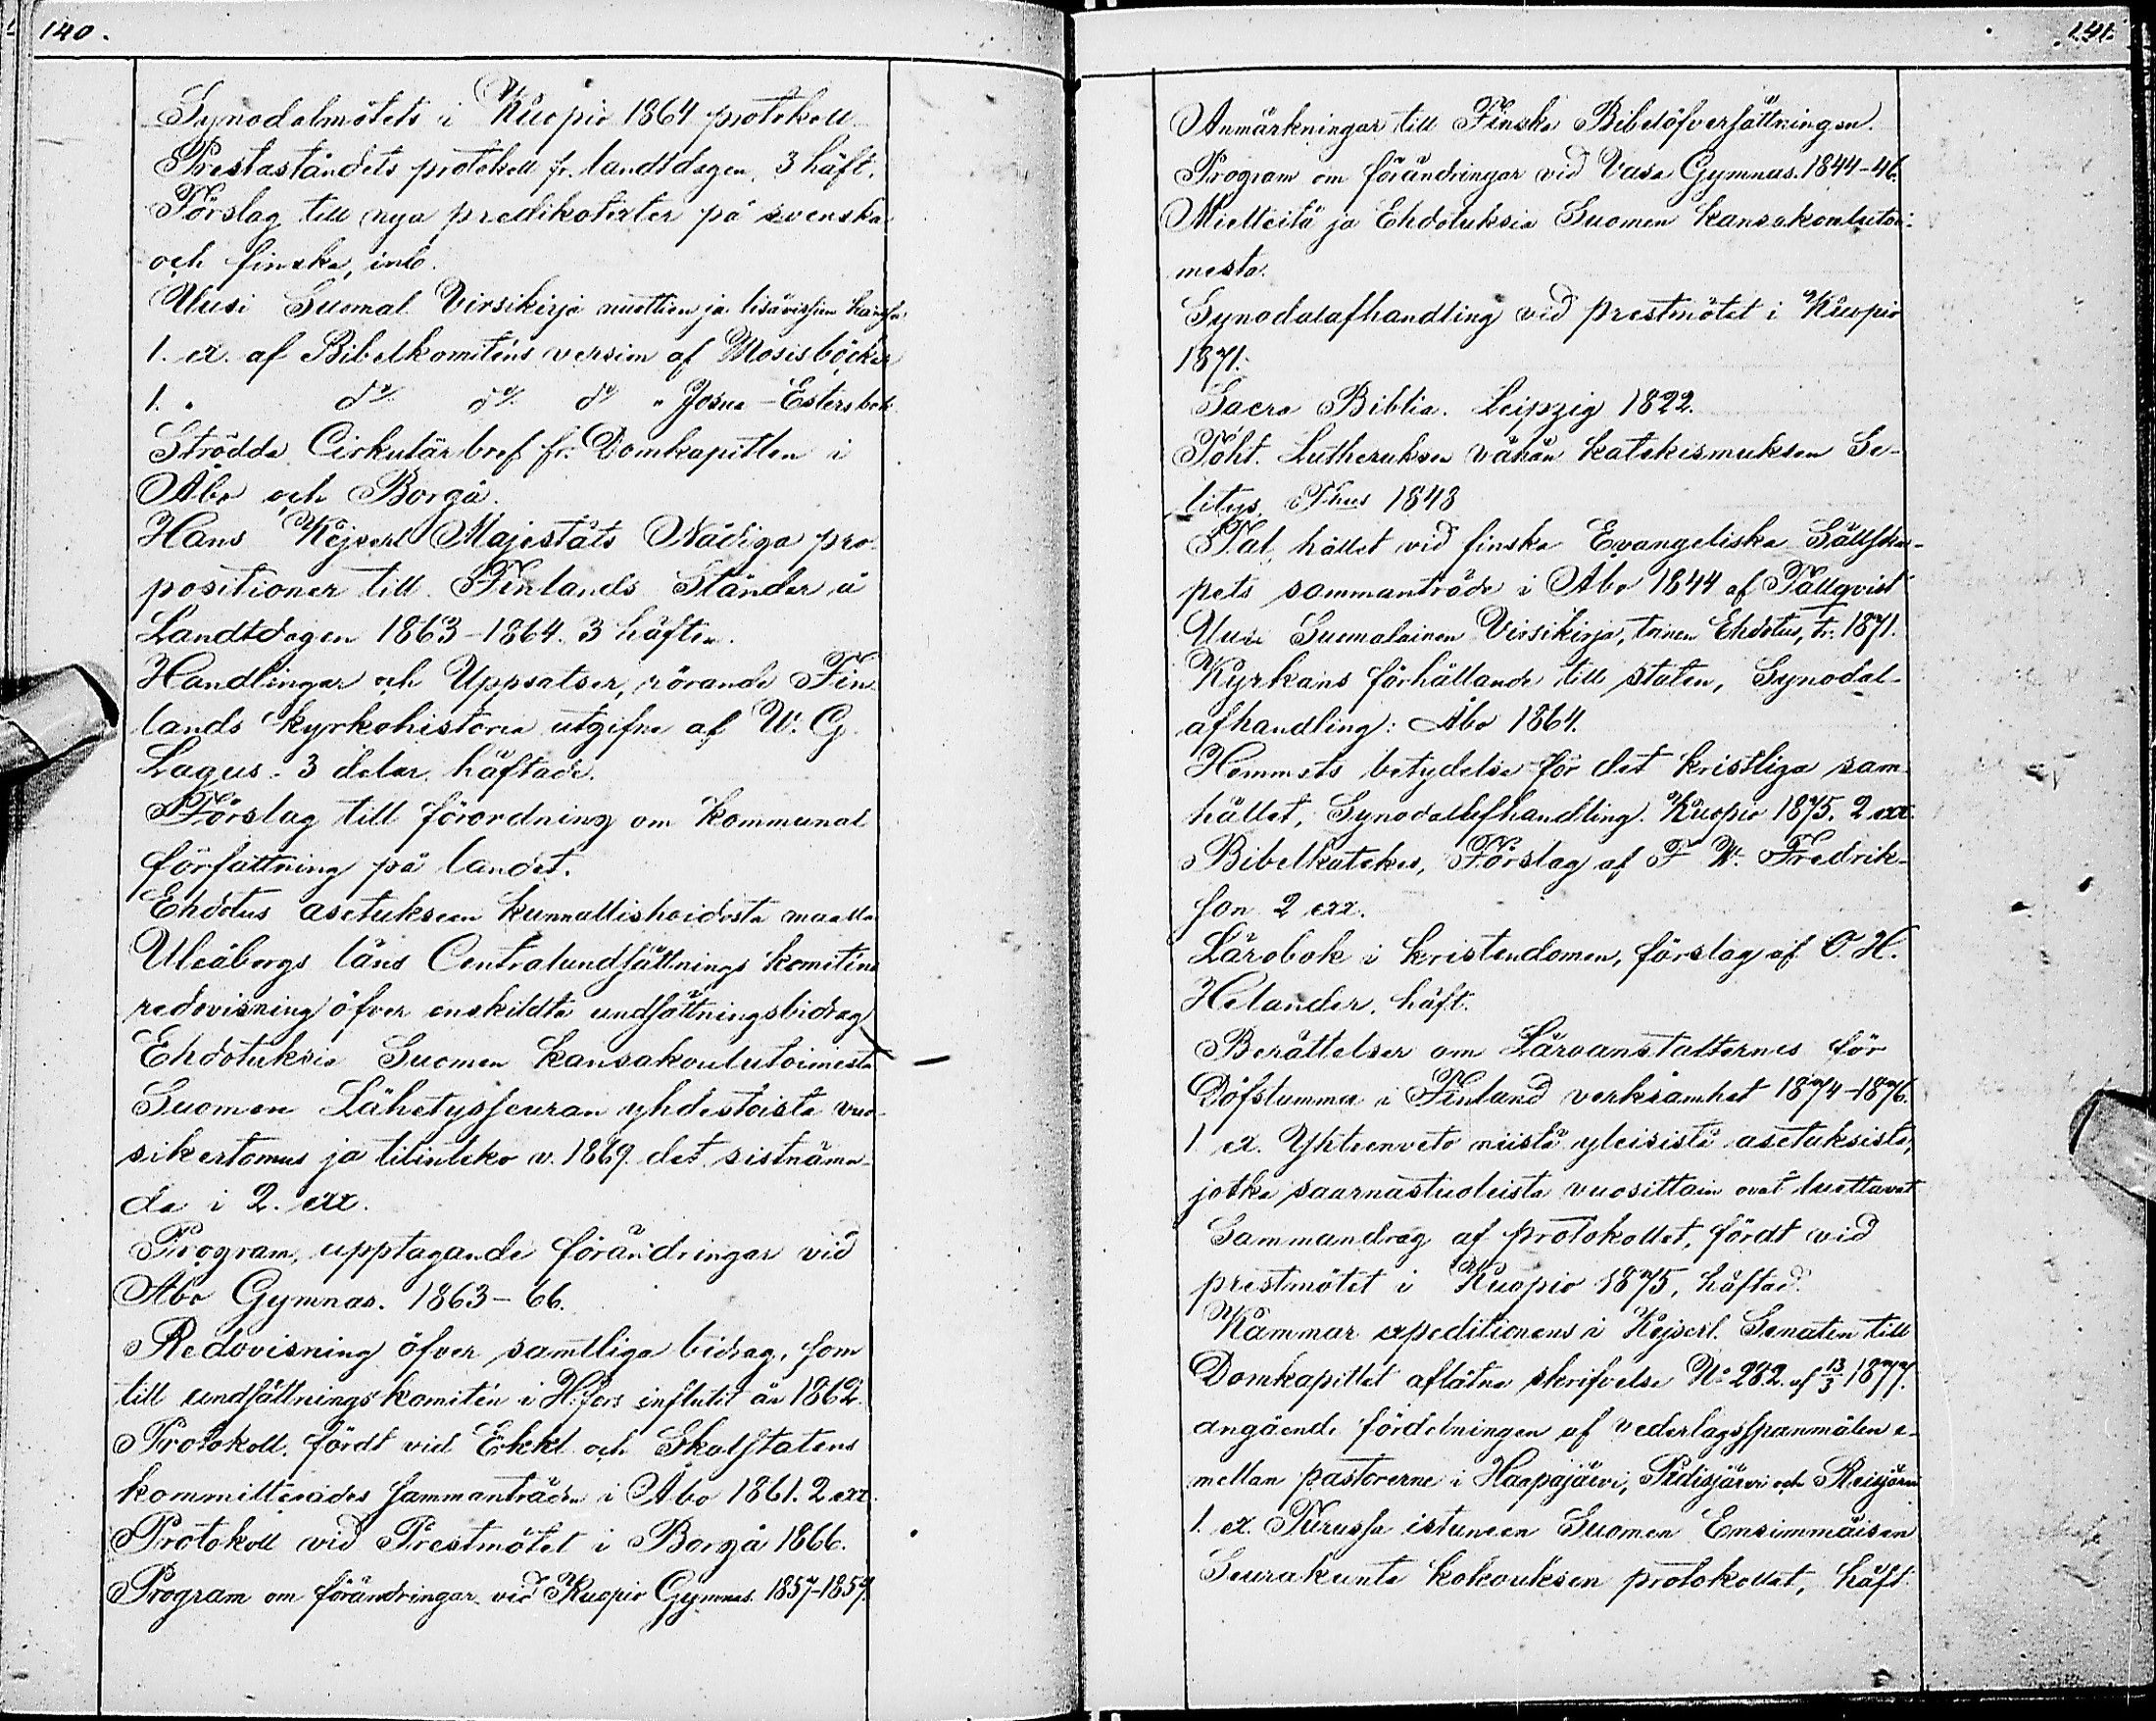 140.
Synodalmötets i Kuopio 1864 protokoll
Prestaståndets protokoll fr. landtdagen, 3 häft.
Förslag till nya predikotexter på svenska
och finska, inb.
Uusi Suomal. Virsikirja nuottien ja lisävirssien kanssa
1. ex. af Bibelkomiténs version af Mosisböcker
1. " do do do " Josua-Estersbok
Strödda Cirkulärbref fr. Domkapitlen i
Åbo och Borgå.
Hans Kejserl. Majestäts Nådiga pro-
positioner till Finlands Ständer å
Landtdagen 1863-1864. 3 häften.
Handlingar och Uppsatser, rörande Fin-
lands kyrkohistoria utgifna af W. G.
Lagus. 3 delar, häftade.
Förslag till förordning om kommunal
författning på landet.
Ehdotus asetukseen kunnallishoidosta maalla
Uleåborgs läns Centralundsättnings komiténs
redovisning öfver enskildta undsättningsbidrag
Ehdotuksia Suomen kansakoulutoimesta
Suomen Lähetysseuran yhdestoista vuo-
sikertomus ja tilinteko v. 1869. det sistnämn-
da i 2. exx.
Program, upptagande förändringar vid
Åbo Gymnas. 1863-66.
Redovisning öfver samtliga bidrag, som
till undsättningskomitén i H:fors influtit år 1862.
Protokoll, fördt vid Eckl. och Skolstatens
kommitterades sammanträde i Åbo 1861. 2 exx.
Protokoll vid Prestmötet i Borgå 1866.
Program om förändringar vid Kuopio Gymnas. 1857-1859.
141.
Anmärkningar till Finska Bibelöfversättningen.
Program om förändringar vid Vasa Gymnas. 1844-46.
Mietteitä ja Ehdotuksia Suomen kansakoulutoi-
mesta.
Synodalafhandling vid prestmötet i Kuopio
1871.
Sacra Biblia. Leipzig 1822.
Toht. Lutheruksen vähän katekismuksen Se-
litys, 1848
Tal, hållet vid finska Evangeliska Sällska-
pets sammanträde i Åbo 1844 af Tällqvist
Uusi Suomalainen Virsikirja, toinen Ehdotus, tr. 1871.
Kyrkans förhållande till staten, Synodal-
afhandling: Åbo 1864.
Hemmets betydelse för det kristliga sam-
hället, Synodalafhandling. Kuopio 1875. 2 exx.
Bibelkatekes, Förslag af F. W. Fredrik-
son 2 exx.
Lärobok i kristendomen, förslag af O. H.
Helander, häft.
Berättelser om Läroanstalternes för
Döfstumma i Finland verksamhet 1874-1876.
1 ex. Yhteenveto niistä yleisistä asetuksista,
jotka saarnastuoleista vuosittain ovat luettavat
Sammandrag af protokollet, fördt vid
prestmötet i Kuopio 1875, häftad.
Kammar expeditionens i Kejserl. Senaten till
Domkapitlet aflåtna skrifvelse No 282. af 13/3 1877.
angående fördelningen af vederlagsspanmålen e-
mellan pastorerne i Haapajärvi, Pidisjärvi och Reisjärvi
1. ex. Turussa istuneen Suomen Ensimmäisen
Seurakunta kokouksen protokollat, häft.